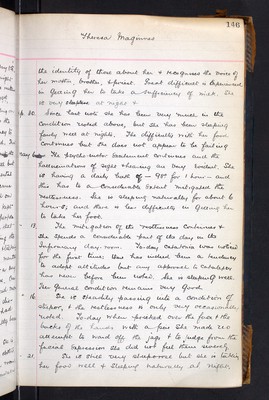 146
Theresa Maguinness
the identity of those about her & recognises the voices of
her mother, brother, & priest. Great difficulty is experienced
in getting her to take a sufficiency of milk. She
is very sleepless at night &
30. Since last note she has been very much in the
condition noted above, but she has been sleeping
fairly well at night. The difficulty with her food
continues but she does not appear to be failing
The psycho-motor excitement continues and the
hallucinations of sight & hearing are very marked. She
is having a daily bath of 98° for 1 hour and
this has to a considerable extent mitigated the
restlessness. She is sleeping naturally for about 6
hours, and there is less difficulty in getting her
to take her food.
The mitigation of the restlessness continues &
she spends a considerable part of the day in the
Infirmary day-room. To-day catatonia was noticed
for the first time. She has indeed been a tendency
to adopt attitudes but any approach to catalepsy
has never before been noted. She is sleeping well.
Her general condition remains very good.
16. She is steadily passing into a condition of
stupor, & the restlessness is only very occasionally
noted. To-day when pricked over the face & the
backs of the hands with a pin she made no
attempt to ward off the jags & to judge from the
facial expression she did not feel them acutely.
21. She is still very stuporose but she is taking
her food well & sleeping naturally at night.